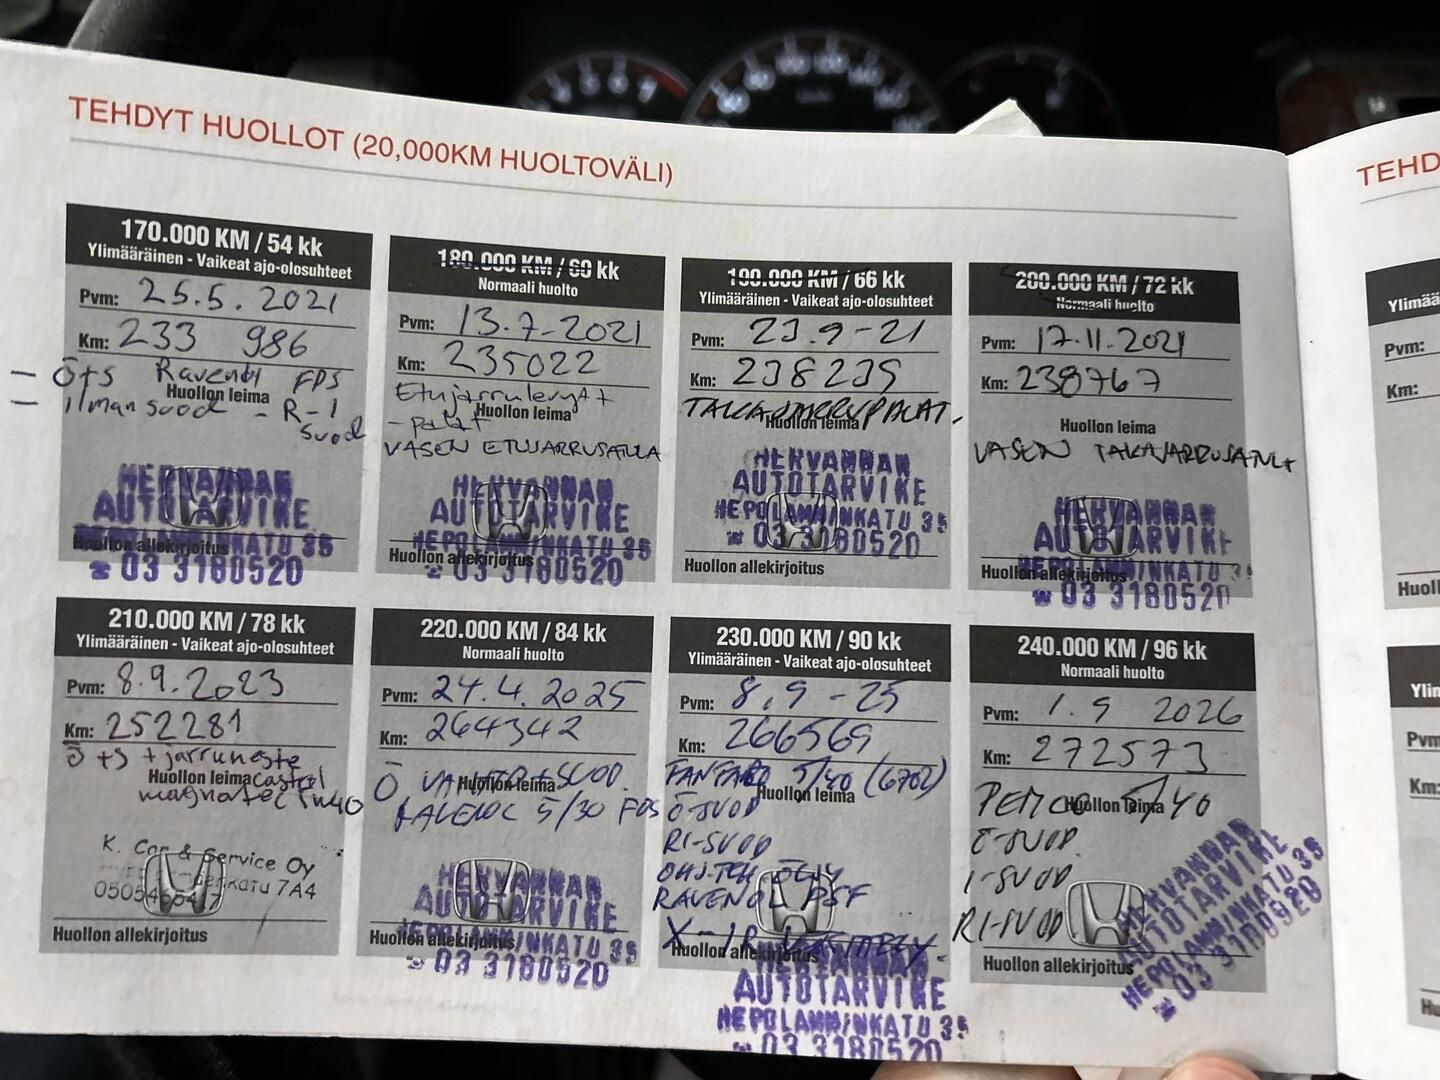 TEHDYT HUOLLOT (20,000KM HUOLTOVÄLI)
170.000 KM / 54 kk
Ylimääräinen - Vaikeat ajo-olosuhteet
Pvm: 25.5.2021
Km: 233 986
- ö+s Ravenol FDS
Huollon leima
- ilman suod - R-i
suod
HERVANNAN
AUTOTARVIKE
HEPOLAMMINKATU 35
Huollon allekirjoitus
☎ 03 3180520
180.000 KM / 60 kk
Normaali huolto
Pvm: 13.7-2021
Km: 235022
Etujarrulevyt +
Huollon leima
- palat
VASEN ETUJARRUSATULA
HERVANNAN
AUTOTARVIKE
HEPOLAMMINKATU 35
Huollon allekirjoitus
☎ 03 3180520
190.000 KM / 66 kk
Ylimääräinen - Vaikeat ajo-olosuhteet
Pvm: 23.9-21
Km: 238239
TAKAJARRUPALAT.
Huollon leima
HERVANNAN
AUTOTARVIKE
HEPOLAMMINKATU 35
☎ 03 3180520
Huollon allekirjoitus
200.000 KM / 72 kk
Normaali huolto
Pvm: 17.11.2021
Km: 238767
Huollon leima
VASEN TAKAJARRUSATULA
HERVANNAN
AUTOTARVIKE
HEPOLAMMINKATU 35
Huollon allekirjoitus
☎ 03 3180520
210.000 KM / 78 kk
Ylimääräinen - Vaikeat ajo-olosuhteet
Pvm: 8.9.2023
Km: 252281
ö+s + jarruneste
Huollon leima castrol
magnatec
K. Car & Service Oy
7A4
Huollon allekirjoitus
220.000 KM / 84 kk
Normaali huolto
Pvm: 24.4.2025
Km: 264342
Ö VAIHTO + SUOD.
Huollon leima
RAVENOL 5/30 FDS
HERVANNAN
AUTOTARVIKE
HEPOLAMMINKATU 35
Huollon allekirjoitus
☎ 03 3180520
230.000 KM / 90 kk
Ylimääräinen - Vaikeat ajo-olosuhteet
Pvm: 8.9-25
Km: 266569
FANFARO 5/40 (6702)
Huollon leima
Ö-SUOD
RI-SUOD
OHJ.TEH ÖLJY
RAVENOL PSF
Huollon allekirjoitus
HERVANNAN
AUTOTARVIKE
HEPOLAMMINKATU 35
03 3180520
240.000 KM / 96 kk
Normaali huolto
Pvm: 1.9 2026
Km: 272573
PEMCO 5/40
Huollon leima
Ö-SUOD
I-SUOD
RI-SUOD
HERVANNAN
AUTOTARVIKE
HEPOLAMMINKATU 35
☎ 03 3180520
Huollon allekirjoitus
TEHD
Ylimää
Pvm:
Km:
Huoll
Ylim
Pvm
Km:
Hu